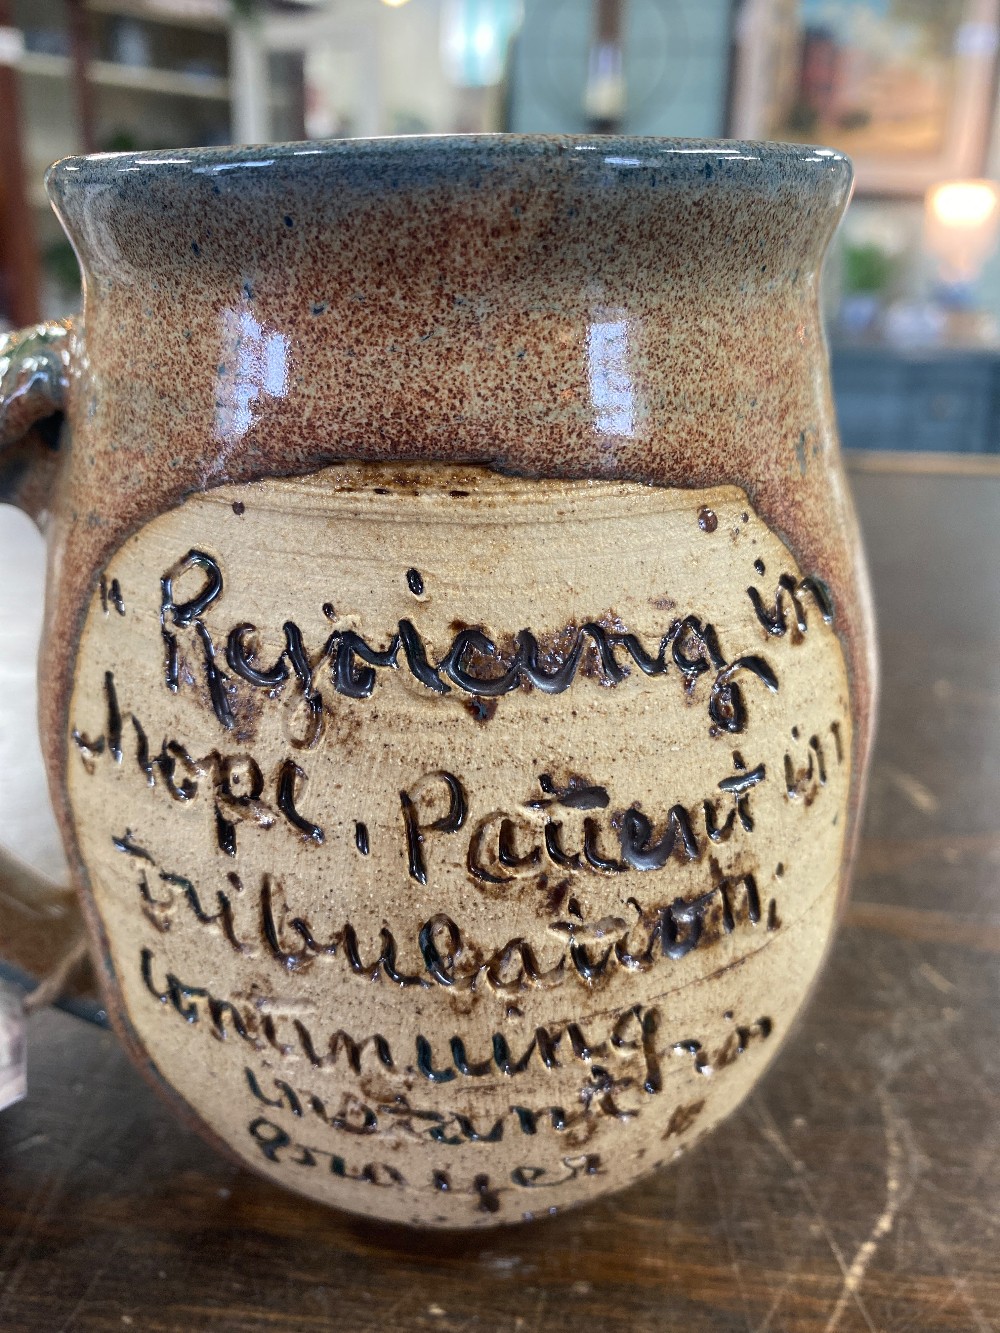 " Rejoicing in
hope, Patient in
tribulation;
continuing
instant in
prayer."